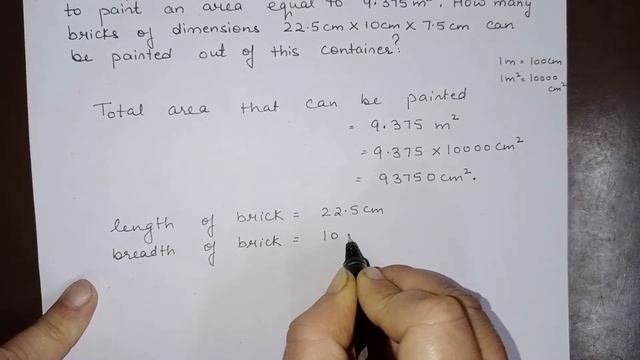 to paint an area equal to 9.375 m². How many
bricks of dimensions 22.5cm × 10cm × 7.5cm can
be painted out of this container?
1m = 100cm
1m² = 10000
cm²
Total area that can be painted
= 9.375 m²
= 9.375 × 10000 cm²
= 93750 cm².
length of brick = 22.5cm
breadth of brick = 10